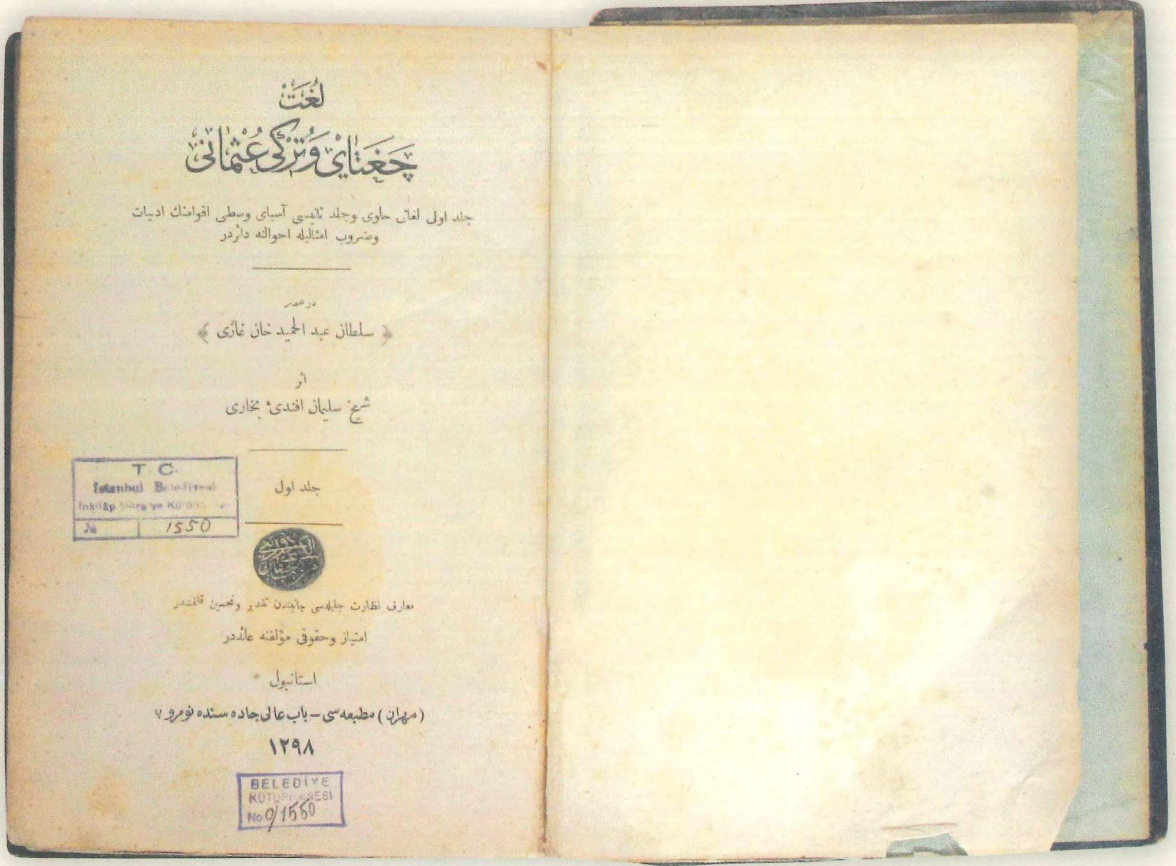 لُغَتْ
چَغَتَاىْ وَتُرْكِى عُثْمَانِى
جلد اولى لغاتى حاوى وجلد ثانيسى آسياى وسطى اقوامنك ادبيات
وضروب امثاليله احوالنه دائردر
در عصر
﴿ سلطان عبد الحميد خان غازى ﴾
از
شيخ سليمان افندئ بخارى
جلد اول
T. C.
İstanbul Belediyesi
İnkılâp Müze ve Kü
№ 1550
معارف نظارت جليله‌سى جانبندن تقدير وتحسين قلنمشدر
امتياز وحقوقى مؤلفنه عائددر
استانبول
(مهران) مطبعه‌سى – باب عالى جاده‌سنده نومرو ٧
١٢٩٨
BELEDİYE
KÜTÜPHANESİ
No O/1550